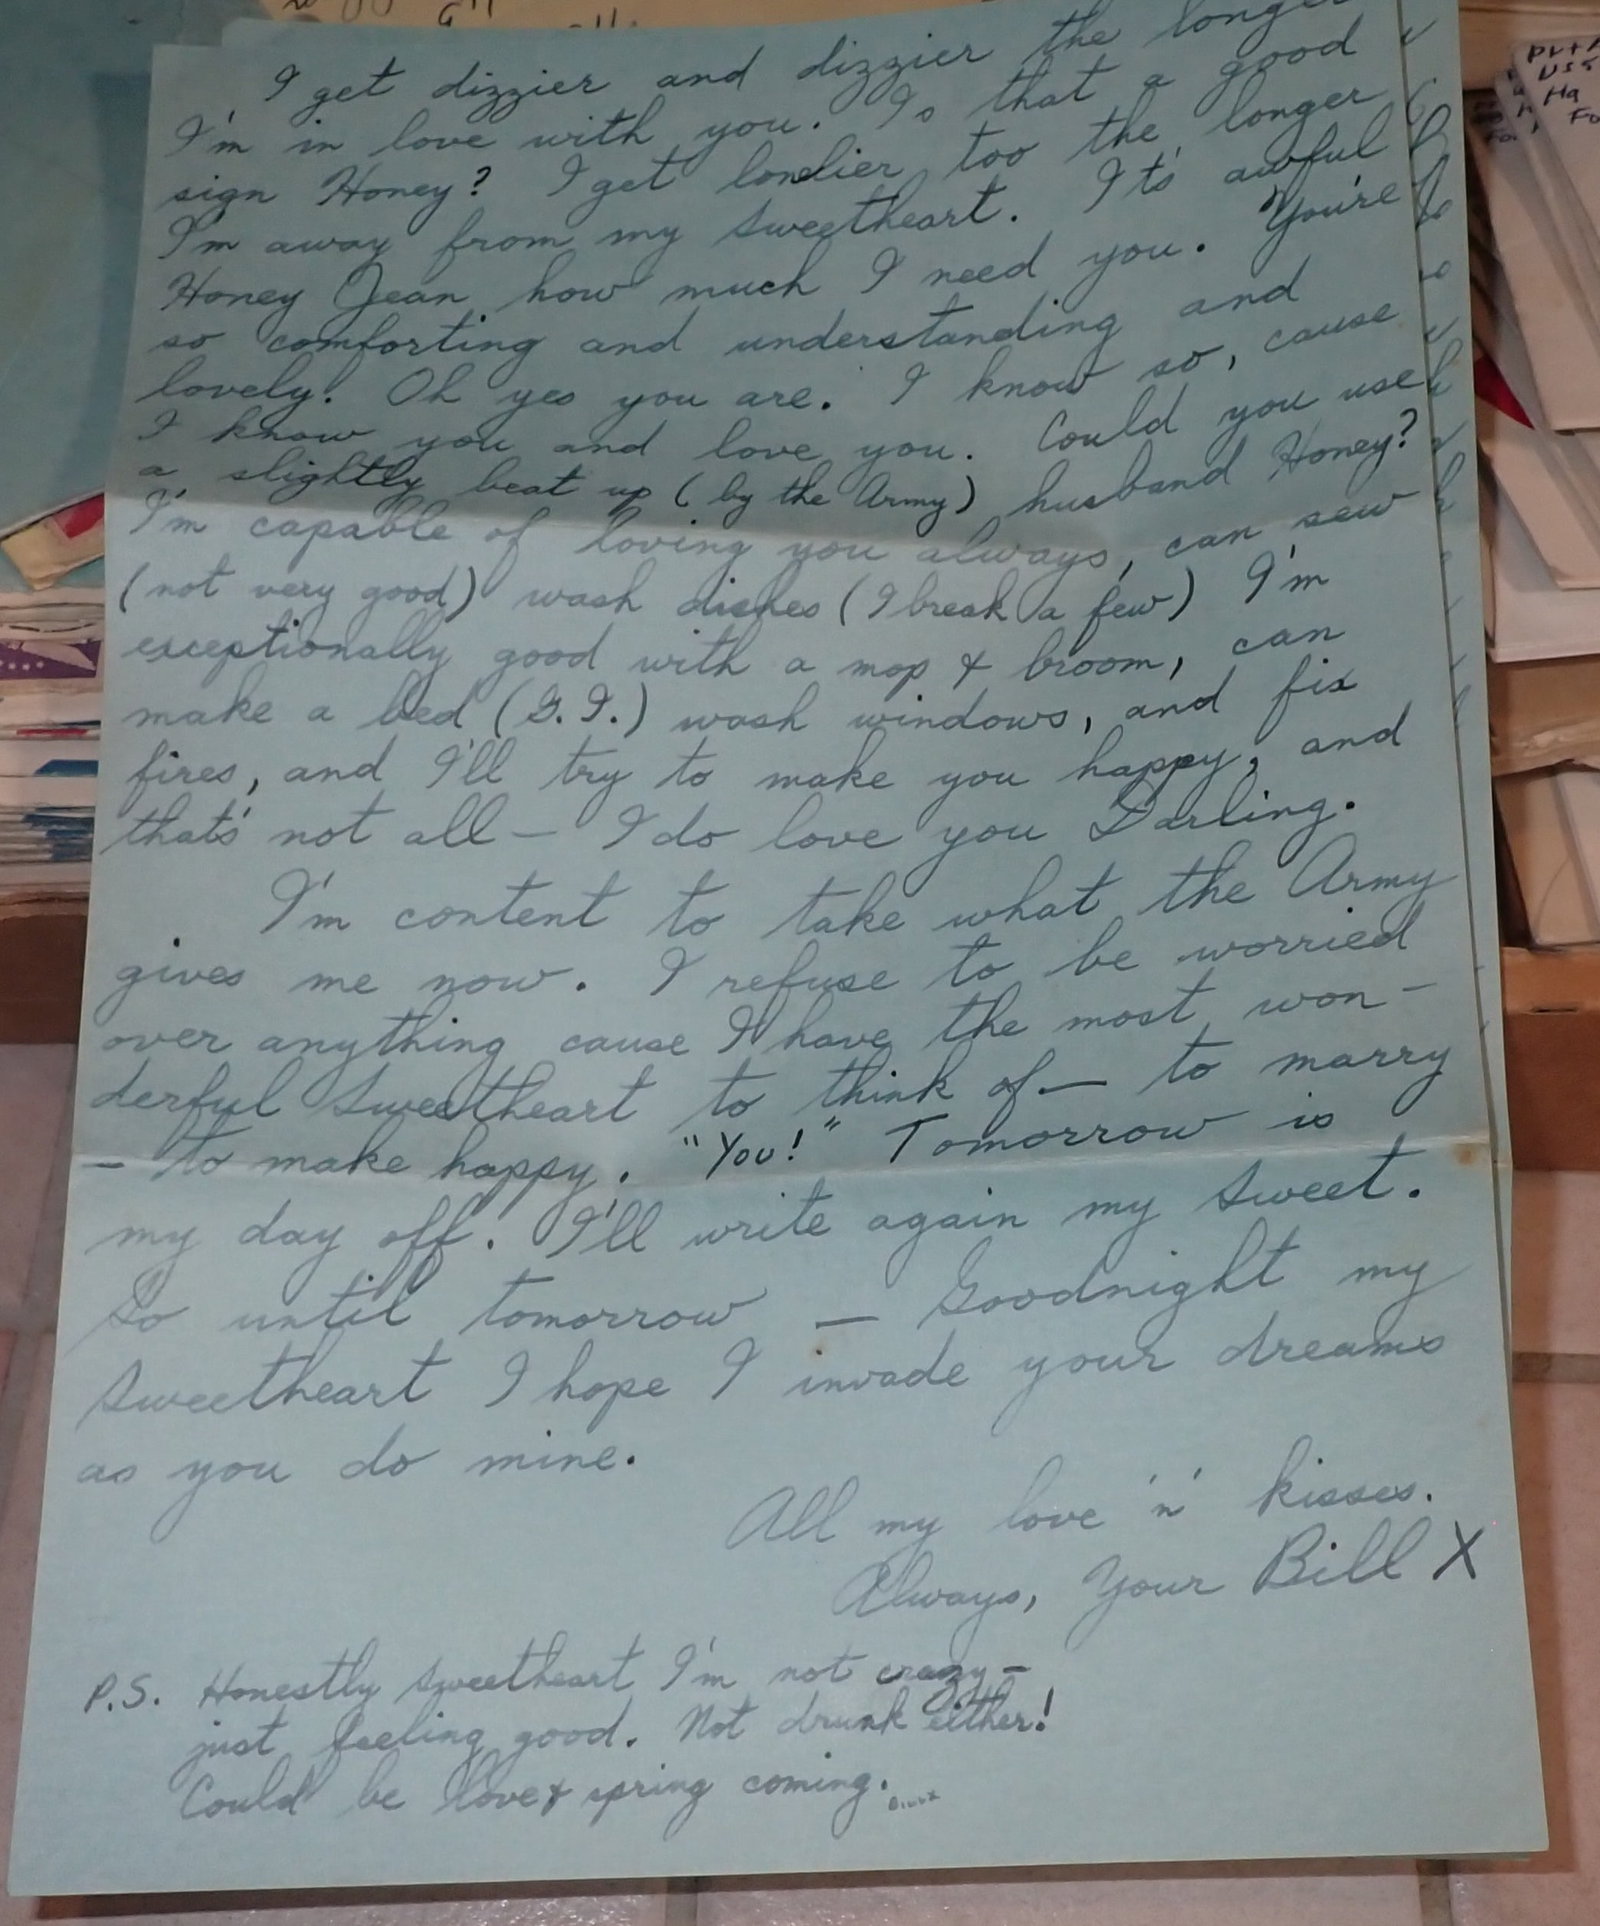 I get dizzier and dizzier the longer
I'm in love with you. Is that a good
sign Honey? I get lonelier too the longer
I'm away from my sweetheart. It's awful
Honey Jean how much I need you. You're
so comforting and understanding and
lovely! Oh yes you are. I know so, cause
I know you and love you. Could you use
a slightly beat up (by the Army) husband Honey?
I'm capable of loving you always, can sew
(not very good) wash dishes (I break a few) I'm
exceptionally good with a mop & broom, can
make a bed (G.I.) wash windows, and fix
fires, and I'll try to make you happy, and
that's not all — I do love you Darling.
I'm content to take what the Army
gives me now. I refuse to be worried
over anything cause I have the most won-
derful sweetheart to think of — to marry
— to make happy. "You!" Tomorrow is
my day off. I'll write again my sweet.
So until tomorrow — Goodnight my
sweetheart I hope I invade your dreams
as you do mine.
All my love 'n' kisses.
Always, Your Bill X
P.S. Honestly sweetheart I'm not crazy —
just feeling good. Not drunk either!
Could be love & spring coming.